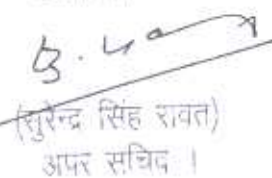 (सुरेन्द्र सिंह रावत)
अपर सचिव ।